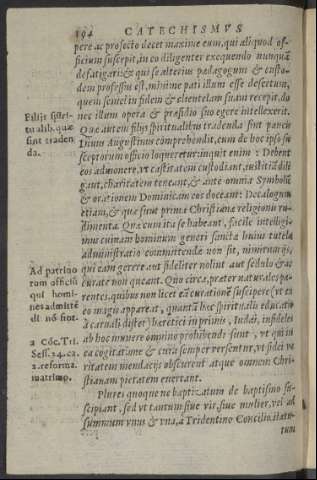 194 CATECHISMVS
pere ac profecto decet maxime eum, qui aliquod of-
ficium suscepit, in eo diligenter exequendo nunquā
defatigari: & qui se alterius pædagogum & custo-
dem professus est, minime pati illum esse desertum,
quem semel in fidem & clientelam suam recepit, do
nec illum opera & præsidio suo egere intellexerit.
Filijs spiri-
tualib. quæ
sint traden
da.
Quæ autem filijs spiritualibus tradenda sint paucis
Diuus Augustinus comprehendit, cum de hoc ipso su
sceptorum officio loqueretur: inquit enim: Debent
eos admonere, vt castitatem custodiant, iustitiā dili
gant, charitatem teneant, & ante omnia Symbolū
& orationem Dominicam eos doceant: Decalogum
etiam, & quæ sint prima Christianæ religionis ru-
dimenta. Quæ cum ita se habeant, facile intelligi-
mus cuinam hominum generi sanctæ huius tutelæ
administratio committenda non sit, nimirum ijs,
Ad patrino
rum officiū
qui homi-
nes admittē
di nō sint.
qui eam gerere aut fideliter nolint aut sedulo & ac
curate non queant. Quo circa, præter naturales pa-
rentes, quibus non licet eā curationē suscipere (vt ex
eo magis appareat, quantū hæc spiritualis educatio
à carnali distet) hæretici in primis, Iudæi, infideles
ab hoc munere omnino prohibendi sunt, vt qui in
a Cōc. Tri.
Sess. 24. ca.
2. reforma.
matrimo.
ea cogitatione & cura semper versentur, vt fidei ve
ritatem mendacijs obscurent atque omnem Chri-
stianam pietatem euertant.
Plures quoque ne baptizatum de baptismo su-
scipiant, sed vt tantum siue vir, siue mulier, vel ad
summum vnus & vna, à Tridentino Concilio statu-
tum